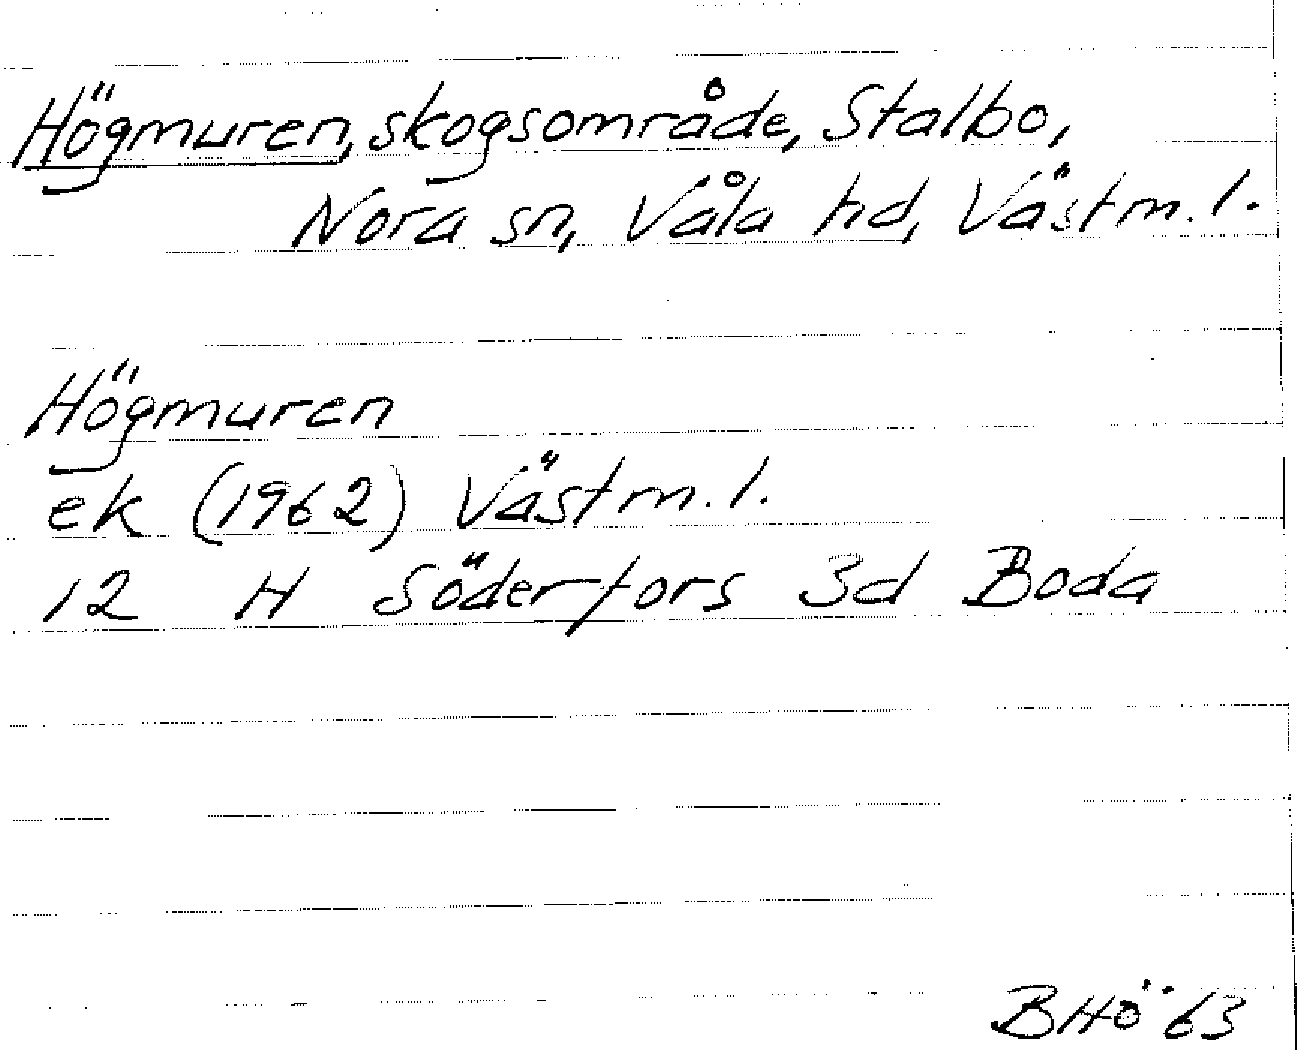 Högmuren, skogsområde, Stalbo,
Nora sn, Våla hd, Västm. l.
Högmuren
ek (1962) Västm. l.
12 H Söderfors 3d Boda
BHö 63